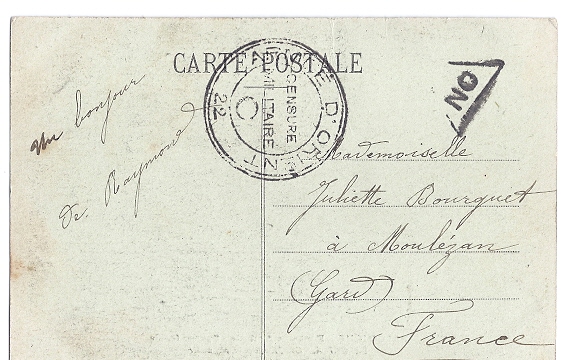 CARTE POSTALE
ARMÉE D'ORIENT
CENSURE
MILITAIRE
C
22
NO
Un bonjour
de Raymond
Mademoiselle
Juliette Bourguet
à Moulézan
(Gard)
France